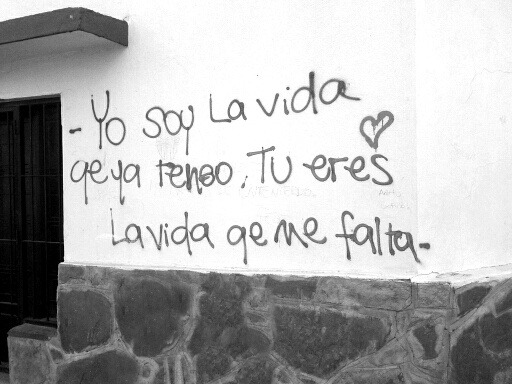 - Yo soy La vida
qe ya tengo, Tu eres
La vida qe me falta -